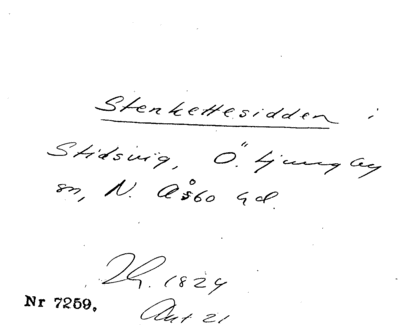 Stenkettesidden i
Stidsvig, Ö. Ljungby
sn, N. Åsbo hd.
Th. 1824
Nr 7259.
Ant 21